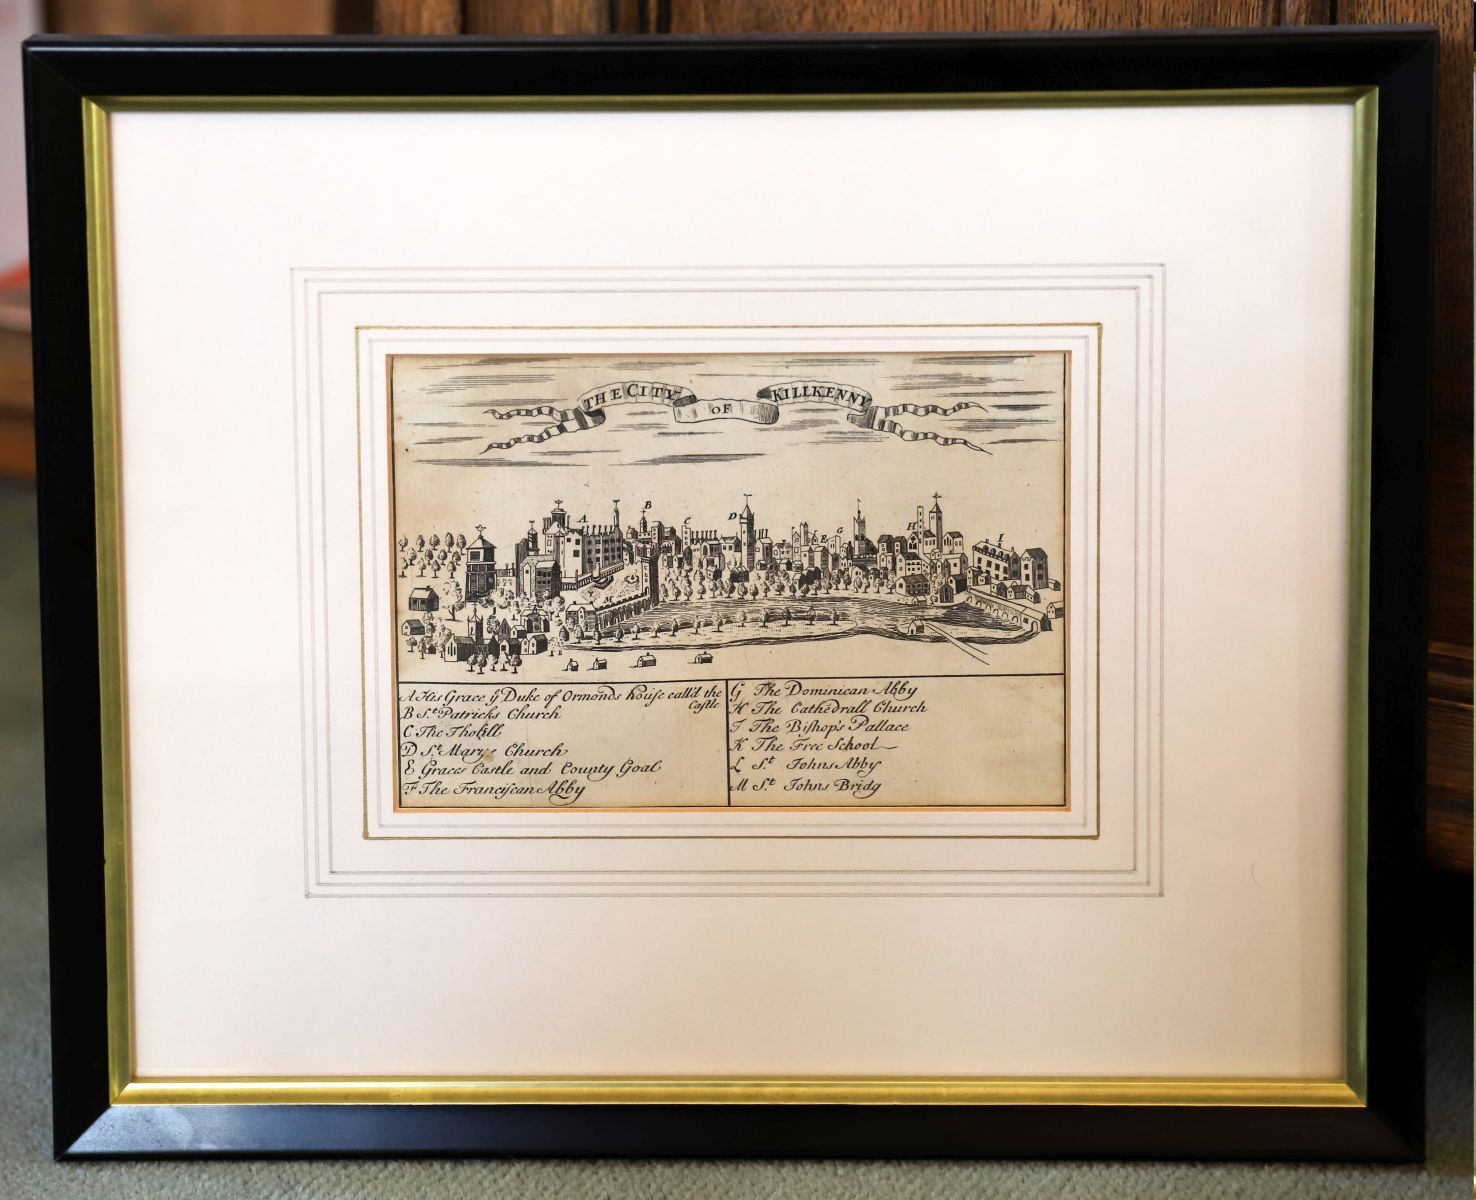 THE CITY OF KILLKENNY
A B C D E G H I
M
A His Grace ÿ Duke of Ormonds house call'd the
Castle
B S.t Patricks Church
C The Tholsill
D S.t Marys Church
E Graces Castle and County Goal
F The Franciscan Abby
G The Dominican Abby
H The Cathedrall Church
I The Bishop's Pallace
K The Free School
L S.t Johns Abby
M S.t Johns Bridg